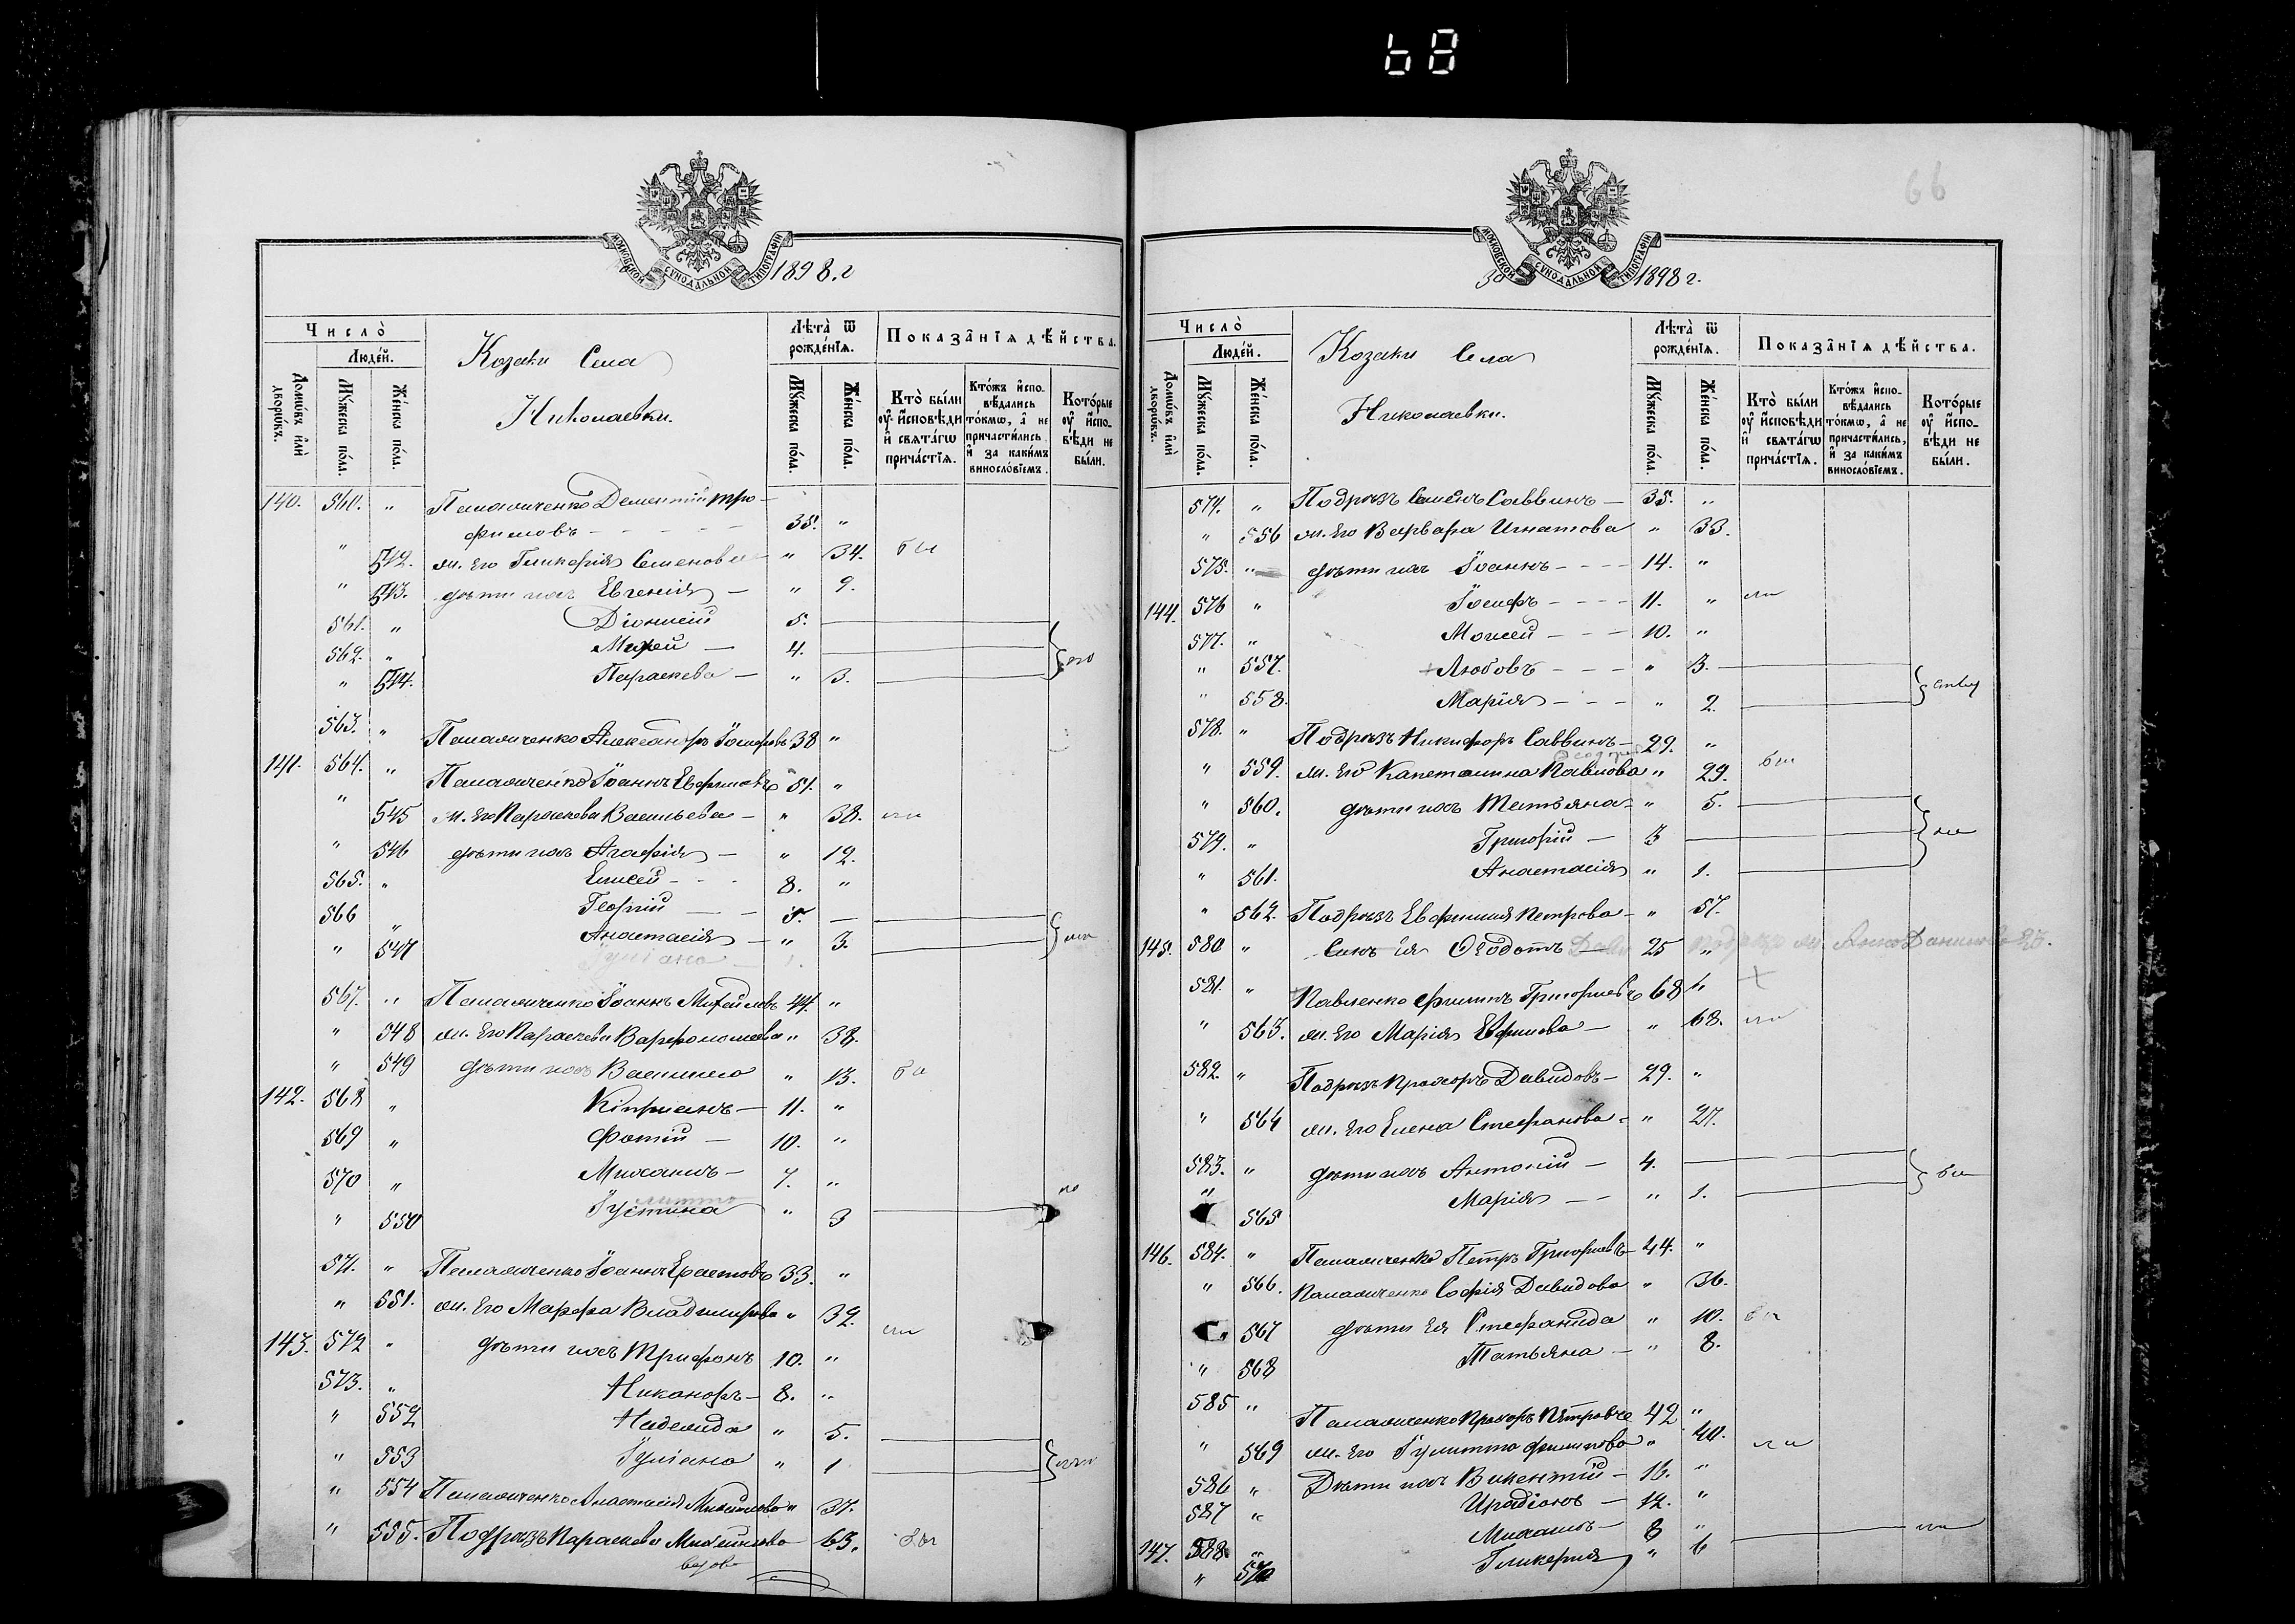 68
66
МОСКОВСКОЙ СУНОДАЛЬНОЙ ТИПОГРАФІИ
1898. г
Число̀
Люде́й.
Домѡ́въ и҆лѝ дворѡ́къ.
Мꙋ́жеска по́ла.
Же́нска по́ла.
Козаки Села
Николаевки.
Лѣ́та ѿ рожде́нїѧ.
Мꙋ́жеска по́ла.
Же́нска по́ла.
Показа̑нїѧ дѣ́йства.
Кто̀ бы́ли оу҆ и҆́сповѣди и҆ свѧта́гѡ прича́стїѧ.
Кто́жъ и҆спо-вѣ́дались то́кмѡ, а҆ не причасти́лись и҆ за каки́мъ виносло́вїемъ.
Кото́рые оу҆ и҆́спо-вѣди не бы́ли.
140. 560. " Паламченко Дементій Тро-
фимовъ - - - - - 35. "
" 542. ж. его Гликерія Семенова - " 34. бы
" 543. дѣти ихъ Евгенія - " 9.
561. " Діонисій 5.
562. " Михей - 4.
" 544. Параскева - " 3.
563. " Паламченко Александръ Іосифовъ 38 "
141. 564. " Паламченко Іоаннъ Евфимовъ 51. "
" 545 ж. его Параскева Васильева - " 38. ли
" 546 дѣти ихъ Агафія - " 12.
565. " Елисей - - - 8. "
566 " Георгій - - 5. -
" 547 Анастасія - " 3.
Іуліана
567. " Паламченко Іоаннъ Михайловъ 44. "
" 548 ж. его Параскева Варфоломеева " 38.
" 549 дѣти ихъ Василиса " 13. бы
142. 568 " Кипріанъ - 11. "
569 " Фотій - 10. "
570 " Михаилъ - 7. "
" 550 Іустина " 3
571. " Паламченко Іоаннъ Ерастовъ 33. "
" 551. ж. его Марфа Владимирова " 32. ли
143. 572 " дѣти ихъ Трифонъ 10. "
573. " Никаноръ - 8. "
" 552 " 5.
" 553 Іуліана " 1
" 554 Паламченко Анастасія Михайлова " 37.
" 555. Подрѣзъ Параскева Михайлова 63. бы
вдова
1898 г.
МОСКОВСКОЙ СУНОДАЛЬНОЙ ТИПОГРАФІИ
Число̀
Люде́й.
Домѡ́въ и҆лѝ дворѡ́къ.
Мꙋ́жеска по́ла.
Же́нска по́ла.
Козаки Села
Николаевки.
Лѣ́та ѿ рожде́нїѧ.
Мꙋ́жеска по́ла.
Же́нска по́ла.
Показа̑нїѧ дѣ́йства.
Кто̀ бы́ли оу҆ и҆́сповѣди и҆ свѧта́гѡ прича́стїѧ.
Кто́жъ и҆спо-вѣ́дались то́кмѡ, а҆ не причасти́лись, и҆ за каки́мъ виносло́вїемъ.
Кото́рые оу҆ и҆́спо-вѣди не бы́ли.
574. " Подрѣзъ Семенъ Саввинъ - 35. "
" 556 ж. его Варвара Игнатова " 33.
575. " дѣти ихъ Іоаннъ - - - 14. "
144. 576 " Іосифъ - - - 11. " ли
577. " Моисей - - - 10. "
" 557. Любовь - - - " 3.
" 558. Марія - - - " 2.
578. " Подрѣзъ Никифоръ Саввинъ - 29. "
" 559. ж. его Капетолина Павлова " 29. бы
" 560. дѣти ихъ Татьяна - " 5.
579. " Григорій - 3
" 561. Анастасія " 1.
" 562. Подрѣзъ Евфимія Петрова - " 57.
145. 580 " Сынъ ея Ѳеодотъ 25 " ж. Анна Данилова 23.
581. " Павленко Филиппъ Григорьевъ 68 "
" 563. ж. его Марія Ефимова - " 68. ли
582. " Подрѣзъ Прохоръ Давидовъ - 29. "
" 564 ж. его Елена Стефанова - " 27.
583. " дѣти ихъ Антоній - 4.
" 565 Марія - - " 1. бы
146. 584. " Паламченко Петръ Григорьевъ - 44. "
" 566. Паламченко Софія Давидова " 36.
" 567 дѣти ея Стефанида " 10. бы
" 568 Татьяна - " 8.
585 " Паламченко Прохоръ Петровъ 42 "
" 569 ж. его Іулитта Филиппова " 40. ли
586 " Дѣти ихъ Викентій - 16. "
587 " Иродіонъ - 12. "
147. 588. " Михаилъ - 8 " ли
" 570 Гликерія " 6